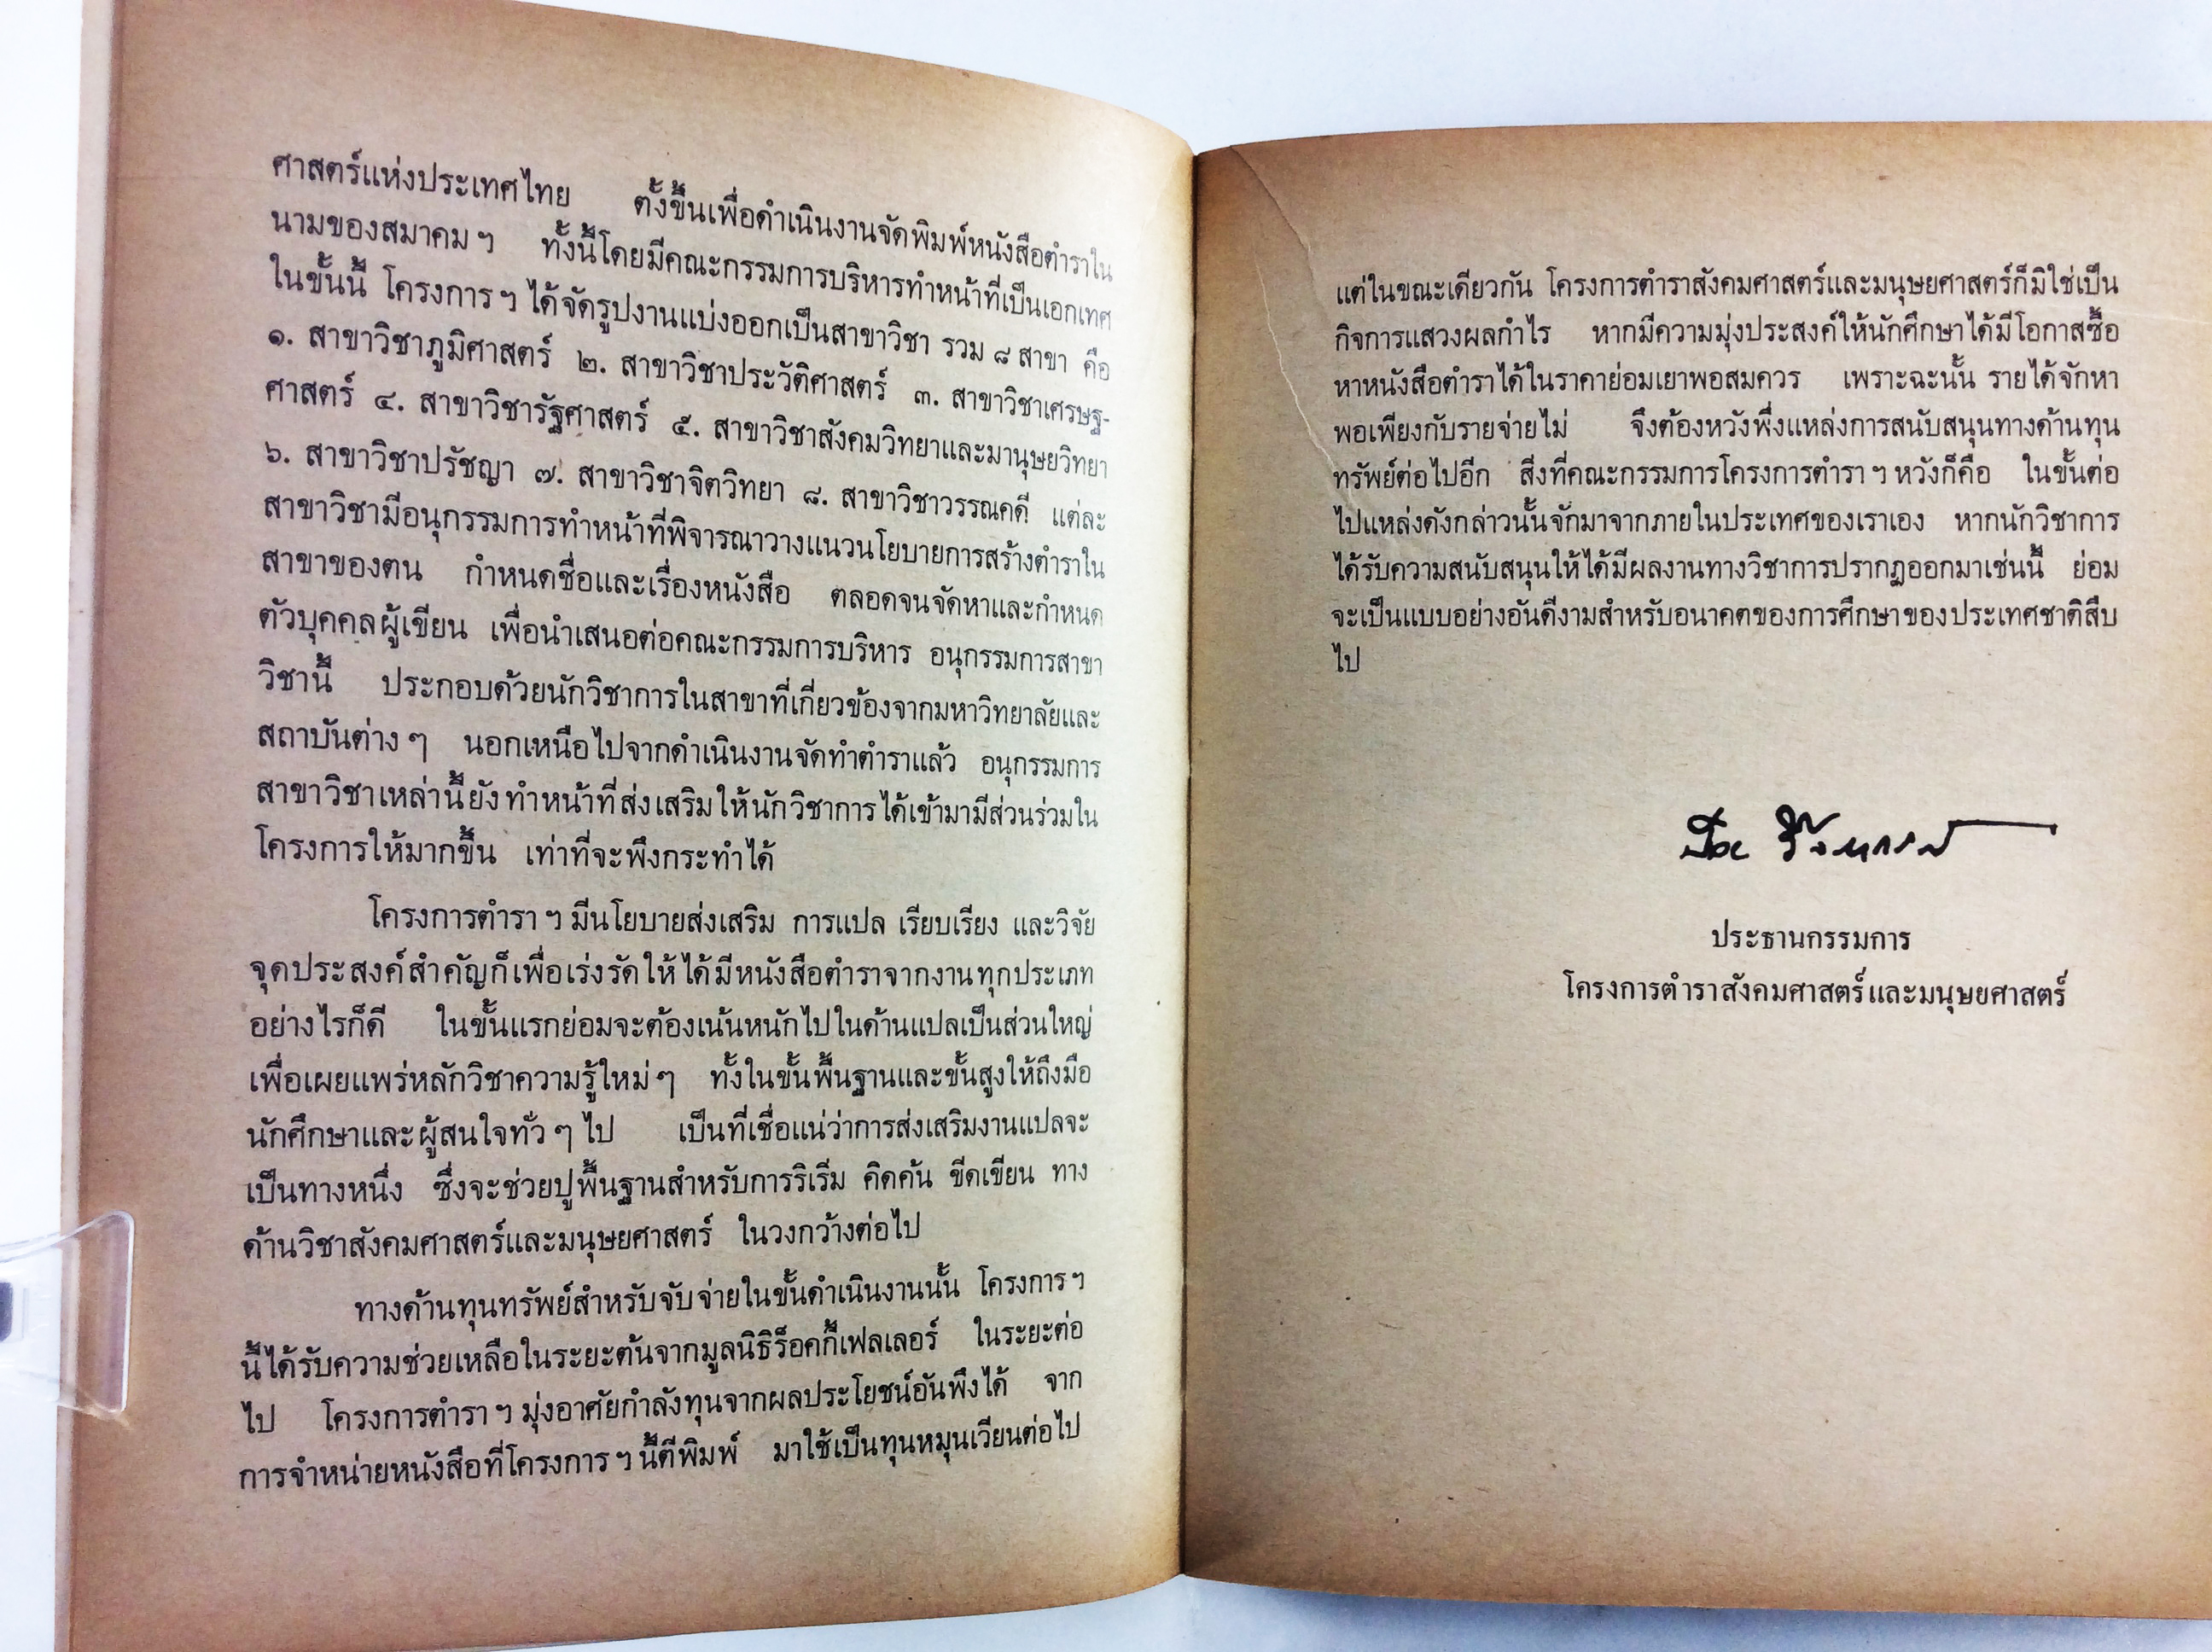 ศาสตร์แห่งประเทศไทย ตั้งขึ้นเพื่อดำเนินงานจัดพิมพ์หนังสือตำราใน
นามของสมาคมฯ ทั้งนี้โดยมีคณะกรรมการบริหารทำหน้าที่เป็นเอกเทศ
ในขั้นนี้ โครงการฯ ได้จัดรูปงานแบ่งออกเป็นสาขาวิชา รวม ๘ สาขา คือ
๑. สาขาวิชาภูมิศาสตร์ ๒. สาขาวิชาประวัติศาสตร์ ๓. สาขาวิชาเศรษฐ-
ศาสตร์ ๔. สาขาวิชารัฐศาสตร์ ๕. สาขาวิชาสังคมวิทยาและมานุษยวิทยา
๖. สาขาวิชาปรัชญา ๗. สาขาวิชาจิตวิทยา ๘. สาขาวิชาวรรณคดี แต่ละ
สาขาวิชามีอนุกรรมการทำหน้าที่พิจารณาวางแนวนโยบายการสร้างตำราใน
สาขาของตน กำหนดชื่อและเรื่องหนังสือ ตลอดจนจัดหาและกำหนด
ตัวบุคคลผู้เขียน เพื่อนำเสนอต่อคณะกรรมการบริหาร อนุกรรมการสาขา
วิชานี้ ประกอบด้วยนักวิชาการในสาขาที่เกี่ยวข้องจากมหาวิทยาลัยและ
สถาบันต่าง ๆ นอกเหนือไปจากดำเนินงานจัดทำตำราแล้ว อนุกรรมการ
สาขาวิชาเหล่านี้ยังทำหน้าที่ส่งเสริมให้นักวิชาการได้เข้ามามีส่วนร่วมใน
โครงการให้มากขึ้น เท่าที่จะพึงกระทำได้
โครงการตำราฯ มีนโยบายส่งเสริม การแปล เรียบเรียง และวิจัย
จุดประสงค์สำคัญก็เพื่อเร่งรัดให้ได้มีหนังสือตำราจากงานทุกประเภท
อย่างไรก็ดี ในขั้นแรกย่อมจะต้องเน้นหนักไปในด้านแปลเป็นส่วนใหญ่
เพื่อเผยแพร่หลักวิชาความรู้ใหม่ ๆ ทั้งในขั้นพื้นฐานและขั้นสูงให้ถึงมือ
นักศึกษาและผู้สนใจทั่ว ๆ ไป เป็นที่เชื่อแน่ว่าการส่งเสริมงานแปลจะ
เป็นทางหนึ่ง ซึ่งจะช่วยปูพื้นฐานสำหรับการริเริ่ม คิดค้น ขีดเขียน ทาง
ด้านวิชาสังคมศาสตร์และมนุษยศาสตร์ ในวงกว้างต่อไป
ทางด้านทุนทรัพย์สำหรับจับจ่ายในขั้นดำเนินงานนั้น โครงการฯ
นี้ได้รับความช่วยเหลือในระยะต้นจากมูลนิธิร็อคกี้เฟลเลอร์ ในระยะต่อ
ไป โครงการตำราฯ มุ่งอาศัยกำลังทุนจากผลประโยชน์อันพึงได้ จาก
การจำหน่ายหนังสือที่โครงการฯ นี้ตีพิมพ์ มาใช้เป็นทุนหมุนเวียนต่อไป
แต่ในขณะเดียวกัน โครงการตำราสังคมศาสตร์และมนุษยศาสตร์ก็มิใช่เป็น
กิจการแสวงผลกำไร หากมีความมุ่งประสงค์ให้นักศึกษาได้มีโอกาสซื้อ
หาหนังสือตำราได้ในราคาย่อมเยาพอสมควร เพราะฉะนั้น รายได้จักหา
พอเพียงกับรายจ่ายไม่ จึงต้องหวังพึ่งแหล่งการสนับสนุนทางด้านทุน
ทรัพย์ต่อไปอีก สิ่งที่คณะกรรมการโครงการตำราฯ หวังก็คือ ในขั้นต่อ
ไปแหล่งดังกล่าวนั้นจักมาจากภายในประเทศของเราเอง หากนักวิชาการ
ได้รับความสนับสนุนให้ได้มีผลงานทางวิชาการปรากฏออกมาเช่นนี้ ย่อม
จะเป็นแบบอย่างอันดีงามสำหรับอนาคตของการศึกษาของประเทศชาติสืบ
ไป
ประธานกรรมการ
โครงการตำราสังคมศาสตร์และมนุษยศาสตร์